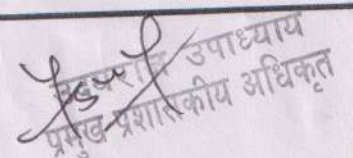 उपाध्याय
प्रमुख प्रशासकीय अधिकृत